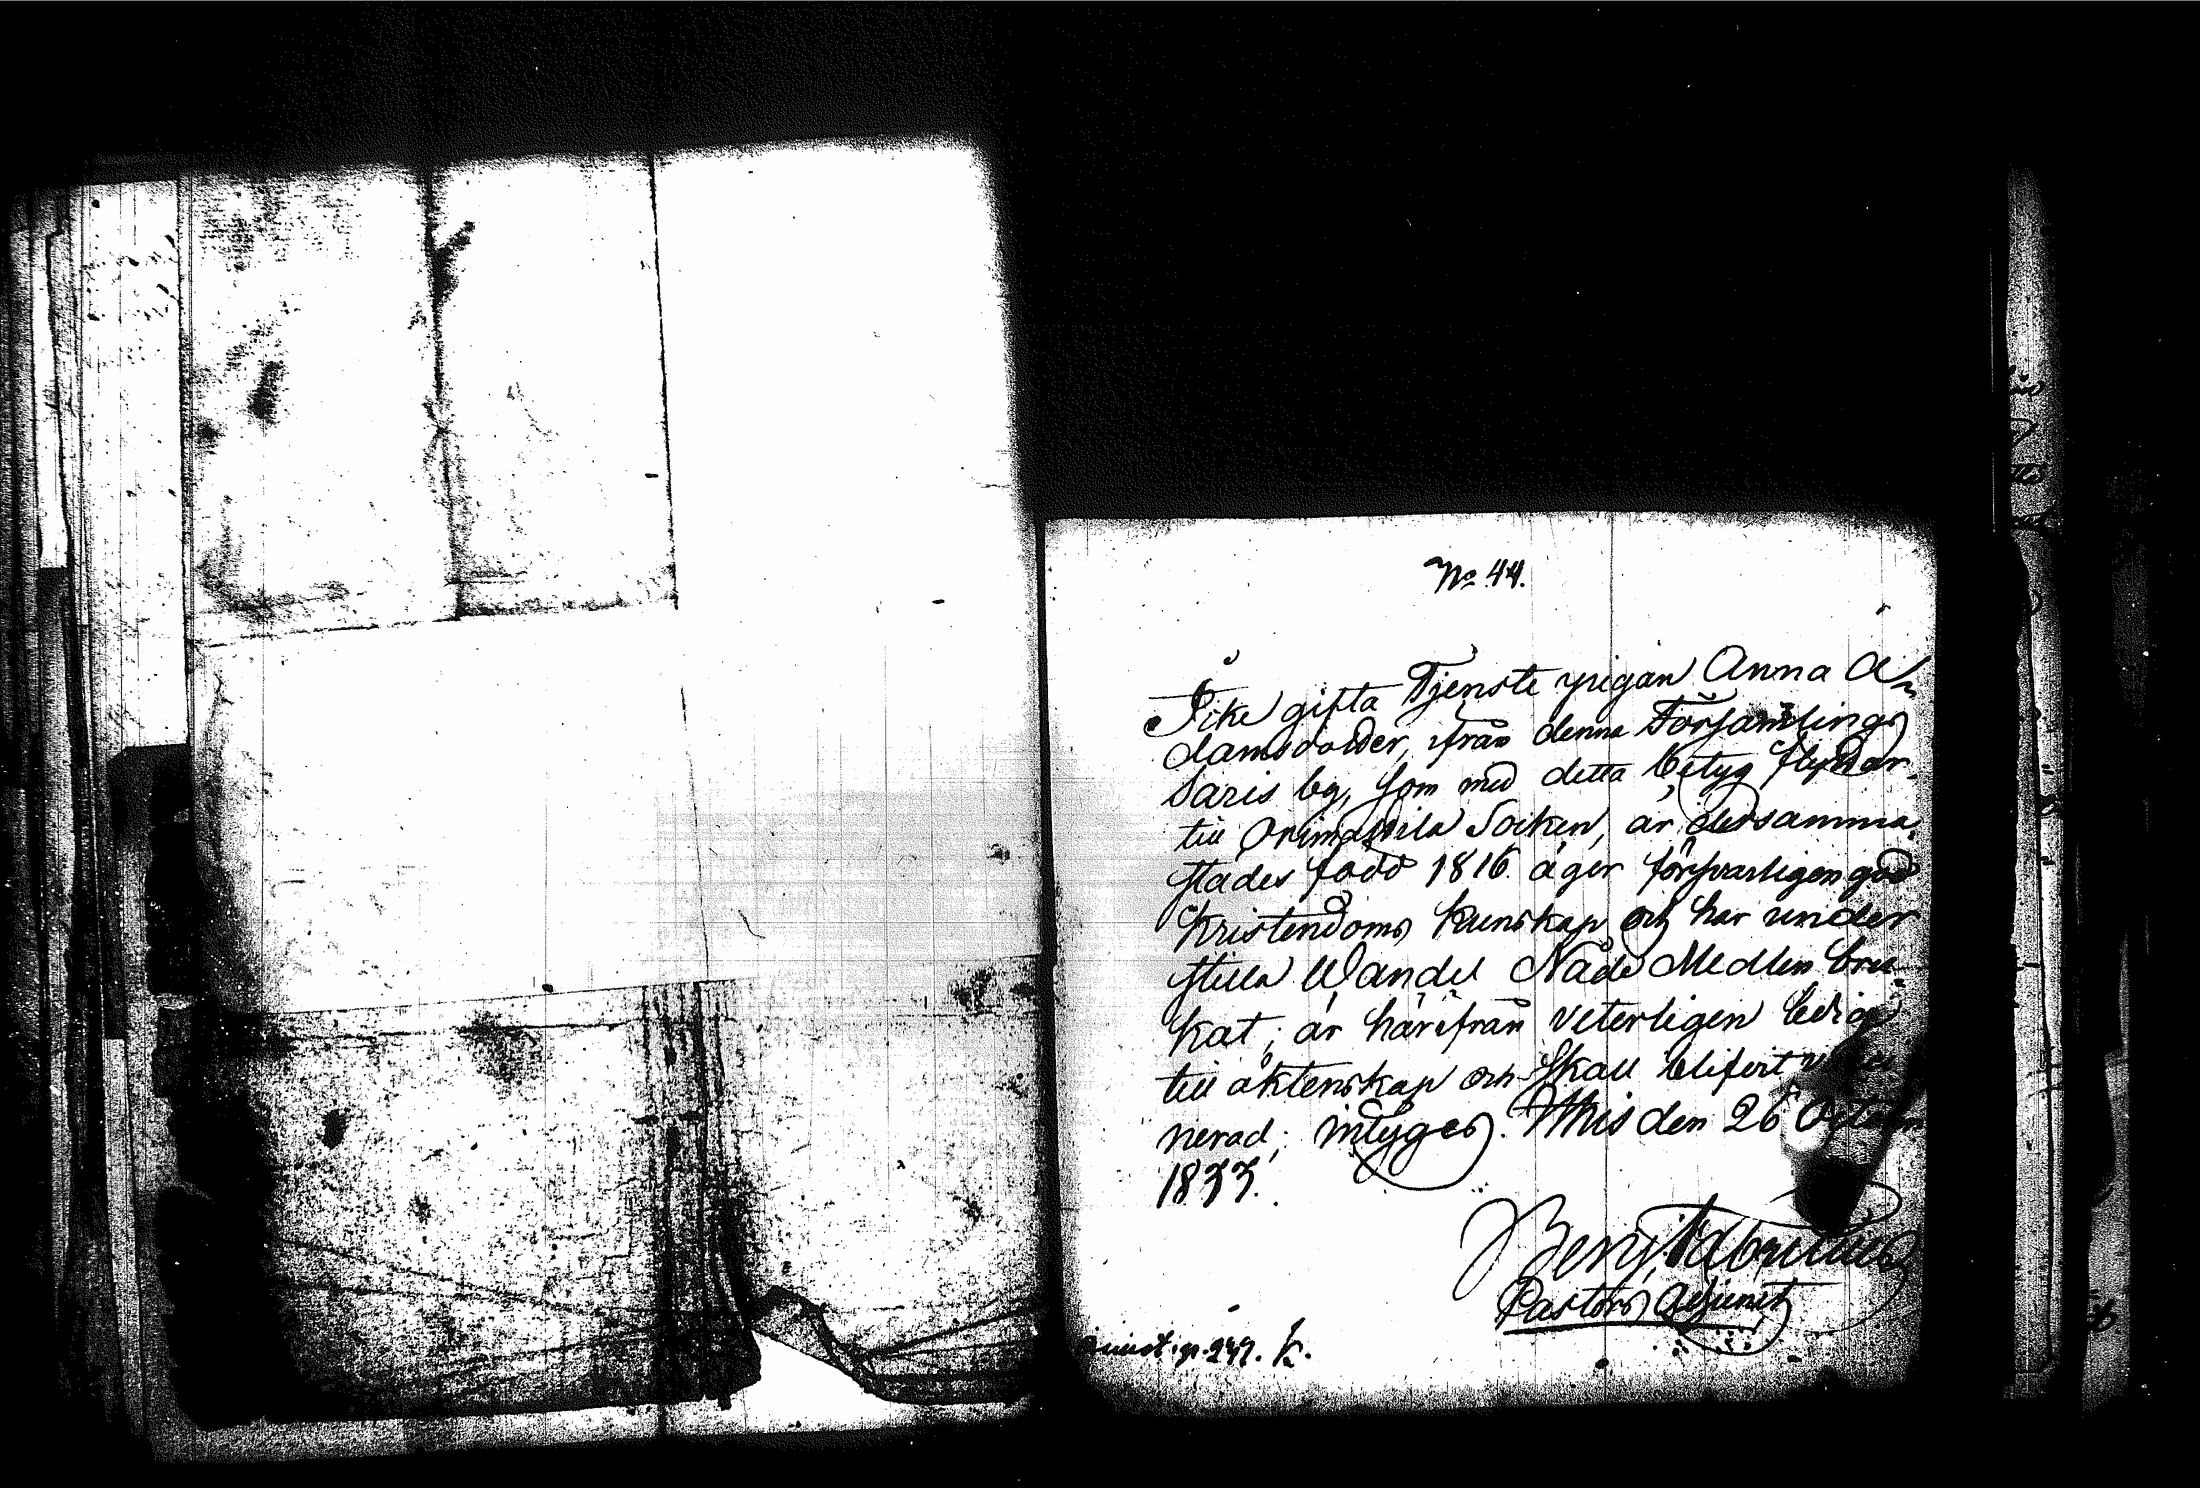 No 44.
Icke gifta Tjenste pigan Anna A-
damsdotter, ifrån denna Församlings
Saris by, som med detta betyg flyttar
till Orimattila Socken, är dersamma-
städes född 1816 äger försvarligen god
Kristendoms Kunskap och har under
stilla Wandel Nåde Medlen bru-
kat; är härifrån veterligen ledig
till äktenskap och skall blifvit
nerad; intygas. Itthis den 26 October
1833.
Pastors Adjunct
p. 247. K.